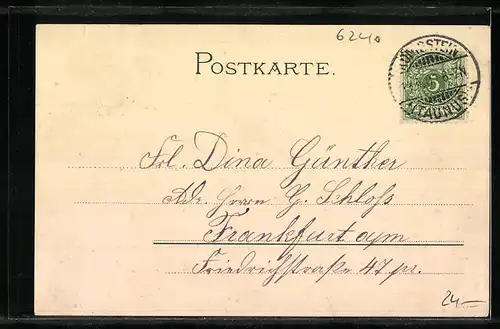 6240
POSTKARTE.
KÖNIGSTEIN
5
(TAUNUS)
Frl. Dina Günther
Adr. Herrn G. Schloss
Frankfurt a/m
Friedrichstraße 47 pr.
24.—